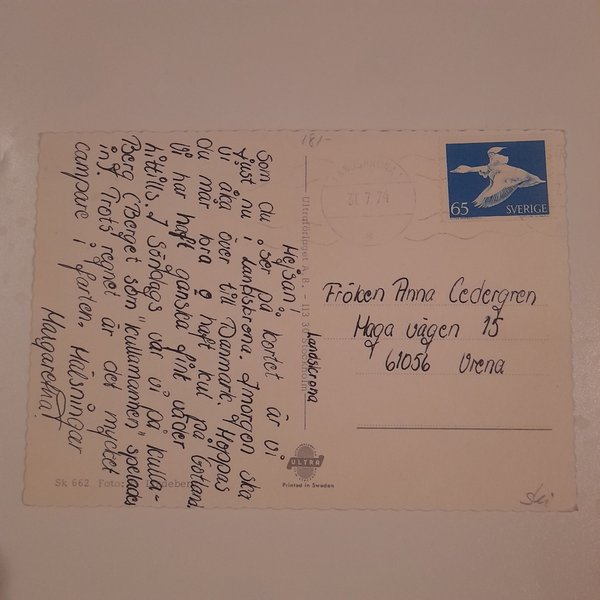 Hejsan!
Som du ser på kortet är vi
just nu i Landskrona. Imorgon ska
vi åka över till Danmark. Hoppas
du mår bra o haft kul på Gotland
Vi har haft ganska fint väder
hittills. I Söndags var vi på Kulla-
Berg (Berget som "kullamannen" spelades
in). Trots regnet är det mycket
campare i farten. Hälsningar
Margaretha!
Landskrona
181-
LANDSKRONA
31.7.74
65 SVERIGE
Fröken Anna Cedergren
Haga vägen 15
61056 Vrena
Ultraförlaget A.B. - 113 37 Stockholm
ULTRA
Printed in Sweden
Sk 662 Foto: